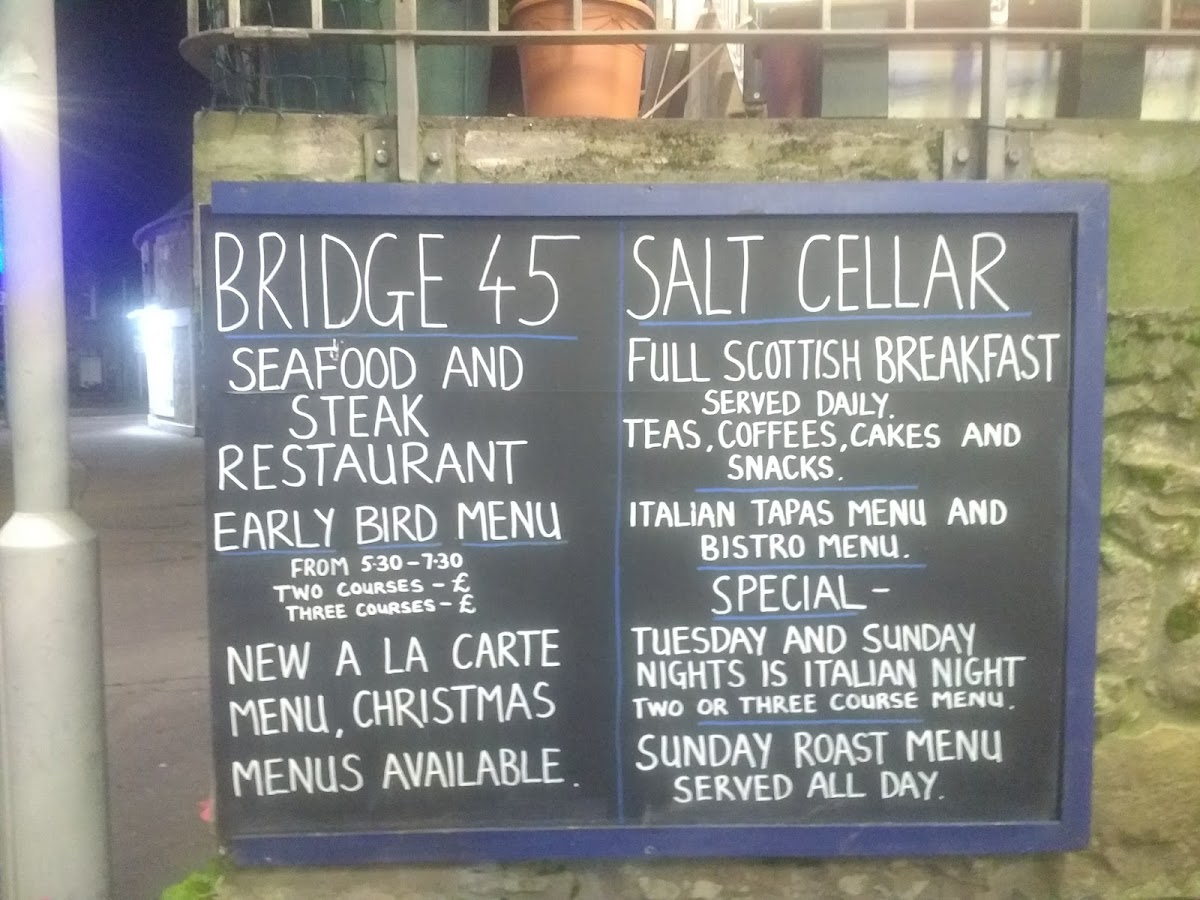 BRIDGE 45
SEAFOOD AND
STEAK
RESTAURANT
EARLY BIRD MENU
FROM 5·30 – 7·30
TWO COURSES – £
THREE COURSES – £
NEW A LA CARTE
MENU, CHRISTMAS
MENUS AVAILABLE.
SALT CELLAR
FULL SCOTTISH BREAKFAST
SERVED DAILY.
TEAS, COFFEES, CAKES AND
SNACKS.
ITALIAN TAPAS MENU AND
BISTRO MENU.
SPECIAL –
TUESDAY AND SUNDAY
NIGHTS IS ITALIAN NIGHT
TWO OR THREE COURSE MENU.
SUNDAY ROAST MENU
SERVED ALL DAY.